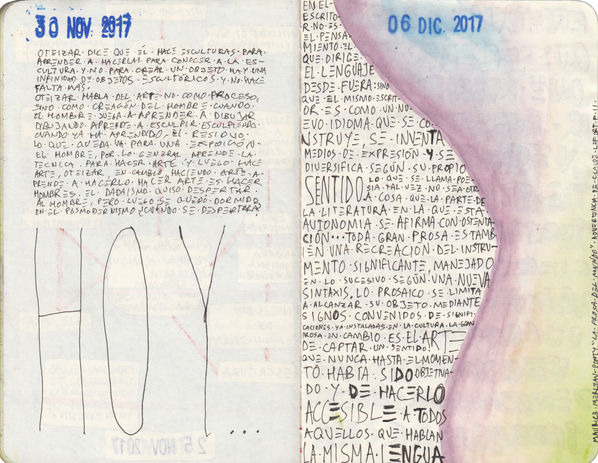 30 NOV. 2017
OTEIZAR DICE QUE ÉL HACE ESCULTURAS PARA
APRENDER A HACERLAS PARA CONOCER A LA ES-
CULTURA Y NO PARA CREAR UN OBJETO. HAY UNA
INFINIDAD DE OBJETOS ESCULTÓRICOS Y NO HACE
FALTA MÁS.
OTEIZAR HABLA DEL ARTE NO COMO PROCESO,
SINO COMO CREACIÓN DEL HOMBRE. CUANDO
EL HOMBRE JUEGA A APRENDER A DIBUJAR
DIBUJANDO, APRENDE A ESCULPIR ESCULPIENDO.
CUANDO YA HA APRENDIDO, EL RESIDUO,
LO QUE QUEDA VA PARA UNA EXPOSICIÓN.
EL HOMBRE, POR LO GENERAL APRENDE LA
TÉCNICA PARA HACER ARTE Y LUEGO HACE
ARTE, OTEIZAR, EN CAMBIO, HACIENDO ARTE A-
PRENDE A HACERLO. HACER ARTE ES HACER
HOMBRES. EL DADAÍSMO QUISO DESPERTAR
AL HOMBRE, PERO LUEGO SE QUEDÓ DORMIDO
EN EL POSMODERNISMO ¿CUÁNDO SE DESPERTARÁ?
HOY...
25 NOV 2017
06 DIC. 2017
EN EL
ESCRITO
R NO ES
EL PENSA
MIENTO EL
QUE DIRIGE
EL LENGUAJE
DESDE FUERA: SINO
QUE EL MISMO ESCRIT
OR ES COMO UN NU
EVO IDIOMA QUE SE CO
NSTRUYE, SE INVENTA
MEDIOS DE EXPRESIÓN Y SE
DIVERSIFICA SEGÚN SU PROPIO
SENTIDO LO QUE SE LLAMA POE
SÍA TAL VEZ NO SEA OTR
A COSA QUE LA PARTE DE
LA LITERATURA EN LA QUE ESTA
AUTONOMÍA SE AFIRMA CON OSTENTA
CIÓN... TODA GRAN PROSA ES TAMB
IÉN UNA RECREACIÓN DEL INSTRU-
MENTO SIGNIFICANTE, MANEJADO
EN LO SUCESIVO SEGÚN UNA NUEVA
SINTAXIS, LO PROSAICO SE LIMITA
A ALCANZAR SU OBJETO MEDIANTE
SIGNOS CONVENIDOS DE SIGNIFI-
CACIONES YA INSTALADAS EN LA CULTURA LA GRAN
PROSA EN CAMBIO ES EL ARTE
DE CAPTAR UN SENTIDO
QUE NUNCA HASTA EL MOMEN
TO HABÍA SIDO OBJETIVA-
DO Y DE HACERLO
ACCESIBLE A TODOS
AQUELLOS QUE HABLAN
LA MISMA LENGUA
MAURICE MERLEAU-PONTY "LA PROSA DEL MUNDO"